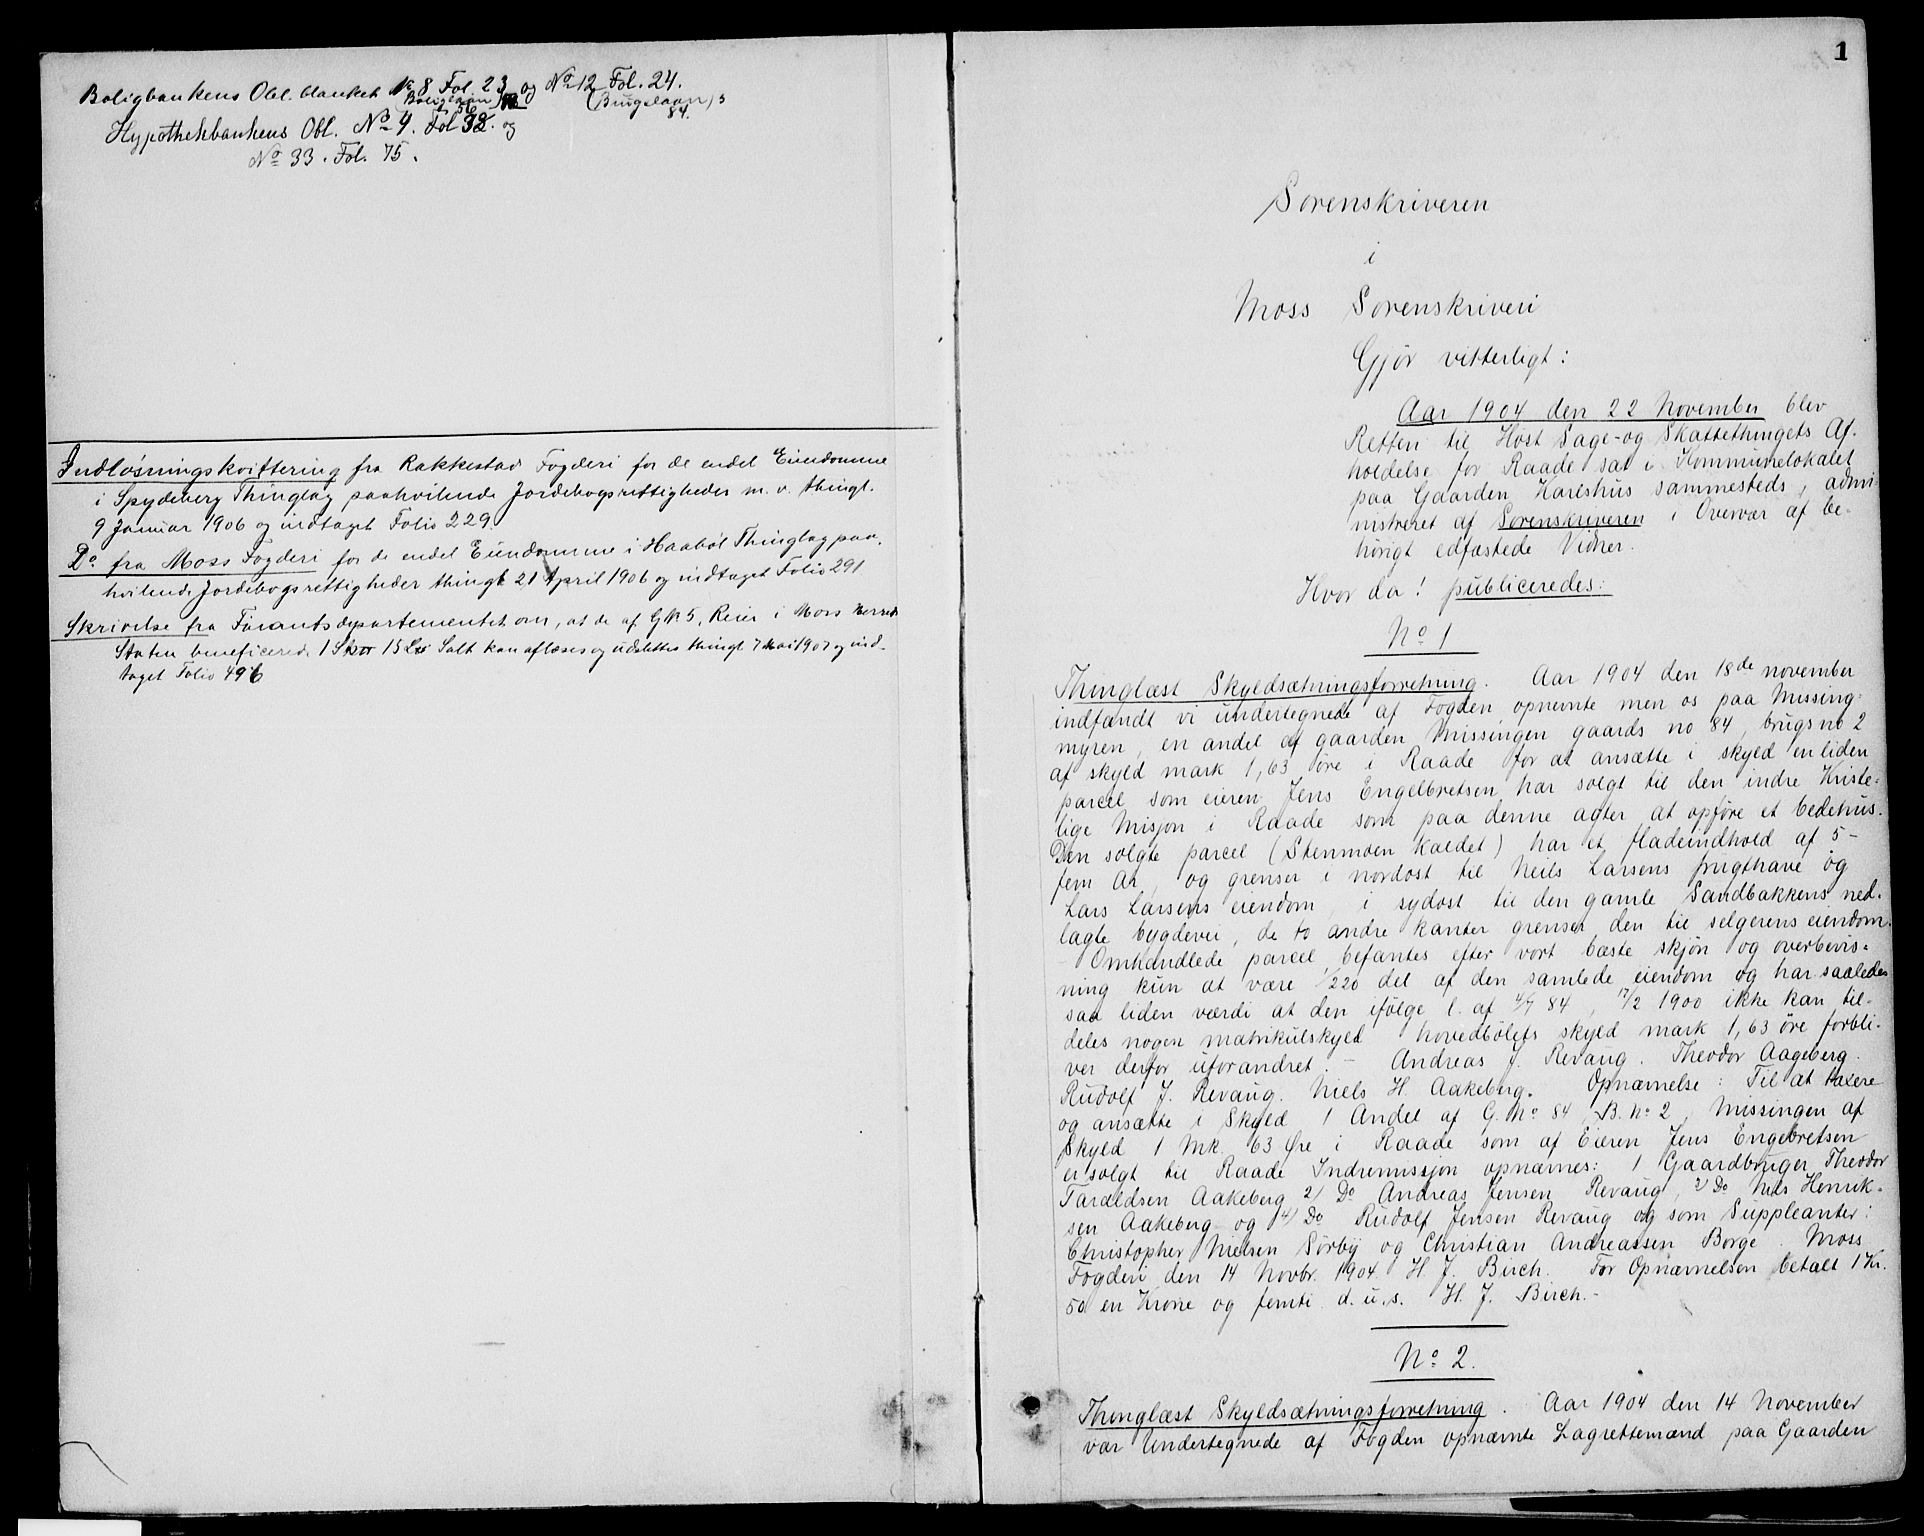 Boligbankens Obl. blanket No 8 Fol. 23 og No 12 Fol. 24.
(Boliglaan) (Brugslaan)
84.
Hypothekbankens Obl. No 4. Fol 32. og
No 33. Fol. 75.
Indløsningskvittering fra Rakkestad Fogderi for de endel Eiendomme
i Spydeberg Thinglag paahvilende Jordebogsrettigheder m. v. thingl.
9 Januar 1906 og indtaget Folio 229.
Do fra Moss Fogderi for de endel Eiendomme i Haabøl Thinglag paa-
hvilende Jordebogsrettigheder thingl 21 April 1906 og indtaget Folio 291
Skrivelse fra Finantsdepartementet om, at de af G No 5, Reier i Moss Herred
Staten beneficerede 1 Skpr 15 Lo Salt kan aflæses og udslettes thingl 7 Mai 1907 og ind-
taget Folio 496
1
Sorenskriveren
i
Moss Sorenskriveri
Gjør vitterligt:
Aar 1904 den 22 November blev
Retten til Høst Sage- og Skattethingets Af-
holdelse for Raade sat i Kommunelokalet
paa Gaarden Karlshus sammesteds, admi-
nistreret af Sorenskriveren i Overvær af be-
hørigt edfæstede Vidner.
Hvor da! publiceredes:
No 1
Thinglæst Skyldsætningsforretning. Aar 1904 den 18de november
indfandt vi undertegnede af Fogden opnevnte men os paa Missing-
myren, en andel af gaarden Missingen gaards no 84, brugs no 2
af skyld mark 1,63 øre i Raade for at ansætte i skyld en liden
parcel som eieren Jens Engelbretsen har solgt til den indre Kriste-
lige Misjon i Raade som paa denne agter at opføre et bedehus.
Den solgte parcel (Stenmoen kaldet) har et fladeindhold af 5-
fem ar, og grenser i nordost til Neils Larsens frugthave og
Lars Larsens eiendom, i sydost til den gamle Sandbakkens ned-
lagte bygdevei, de to andre kanter grenser den til selgerens eiendom.
- Omhandlede parcel befantes efter vort bæste skjøn og overbevis-
ning kun at være 1/220 del af den samlede eiendom og har saaledes
saa liden værdi at den ifølge l. af 4/7 84, 17/2 1900 ikke kan til-
deles nogen matrikulskyld hovedbølets skyld mark 1,63 øre forbli-
ver derfor uforandret. - Andreas J. Revaug. Theodor Aageberg.
Rudolf J. Revaug. Niels H. Aakeberg. Opnævnelse: Til at taxere
og ansætte i Skyld 1 Andel af G. No 84, B. No 2, Missingen af
Skyld 1 Mk 63 Øre i Raade som af Eieren Jens Engebretsen
er solgt til Raade Indremissjon opnævnes: 1 Gaardbruger Theodor
Taraldsen Aakeberg 2) Do Andreas Jensen Revaug, 3) Do Nils Henrik-
sen Aakeberg og 4) Do Rudolf Jensen Revaug og som Suppleanter:
Christopher Nielsen Sørby og Christian Andreassen Borge. Moss
Fogderi den 14 Novbr. 1904. H. J. Birch. For Opnævnelsen betalt 1 Kr.
50 en Krone og femti. d. u. s. H. J. Birch.-
No 2.
Thinglæst Skyldsætningsforretning. Aar 1904 den 14 November
var Undertegnede af Fogden opnævnte Lagrettemænd paa Gaarden